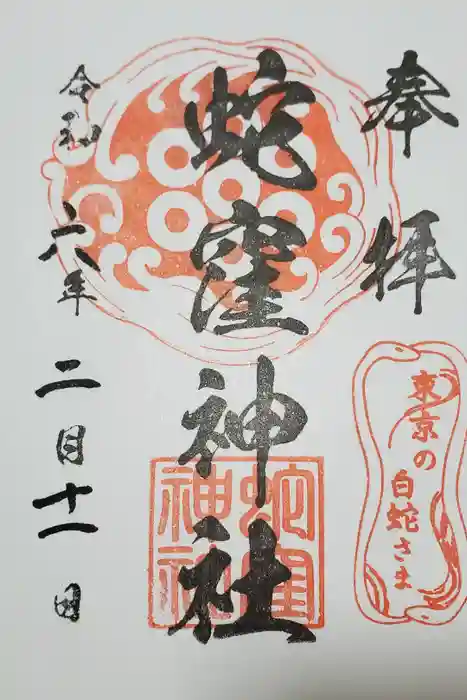 奉拝
東京の
白蛇さま
蛇窪神社
蛇窪
神社
令和六年
二月十一日